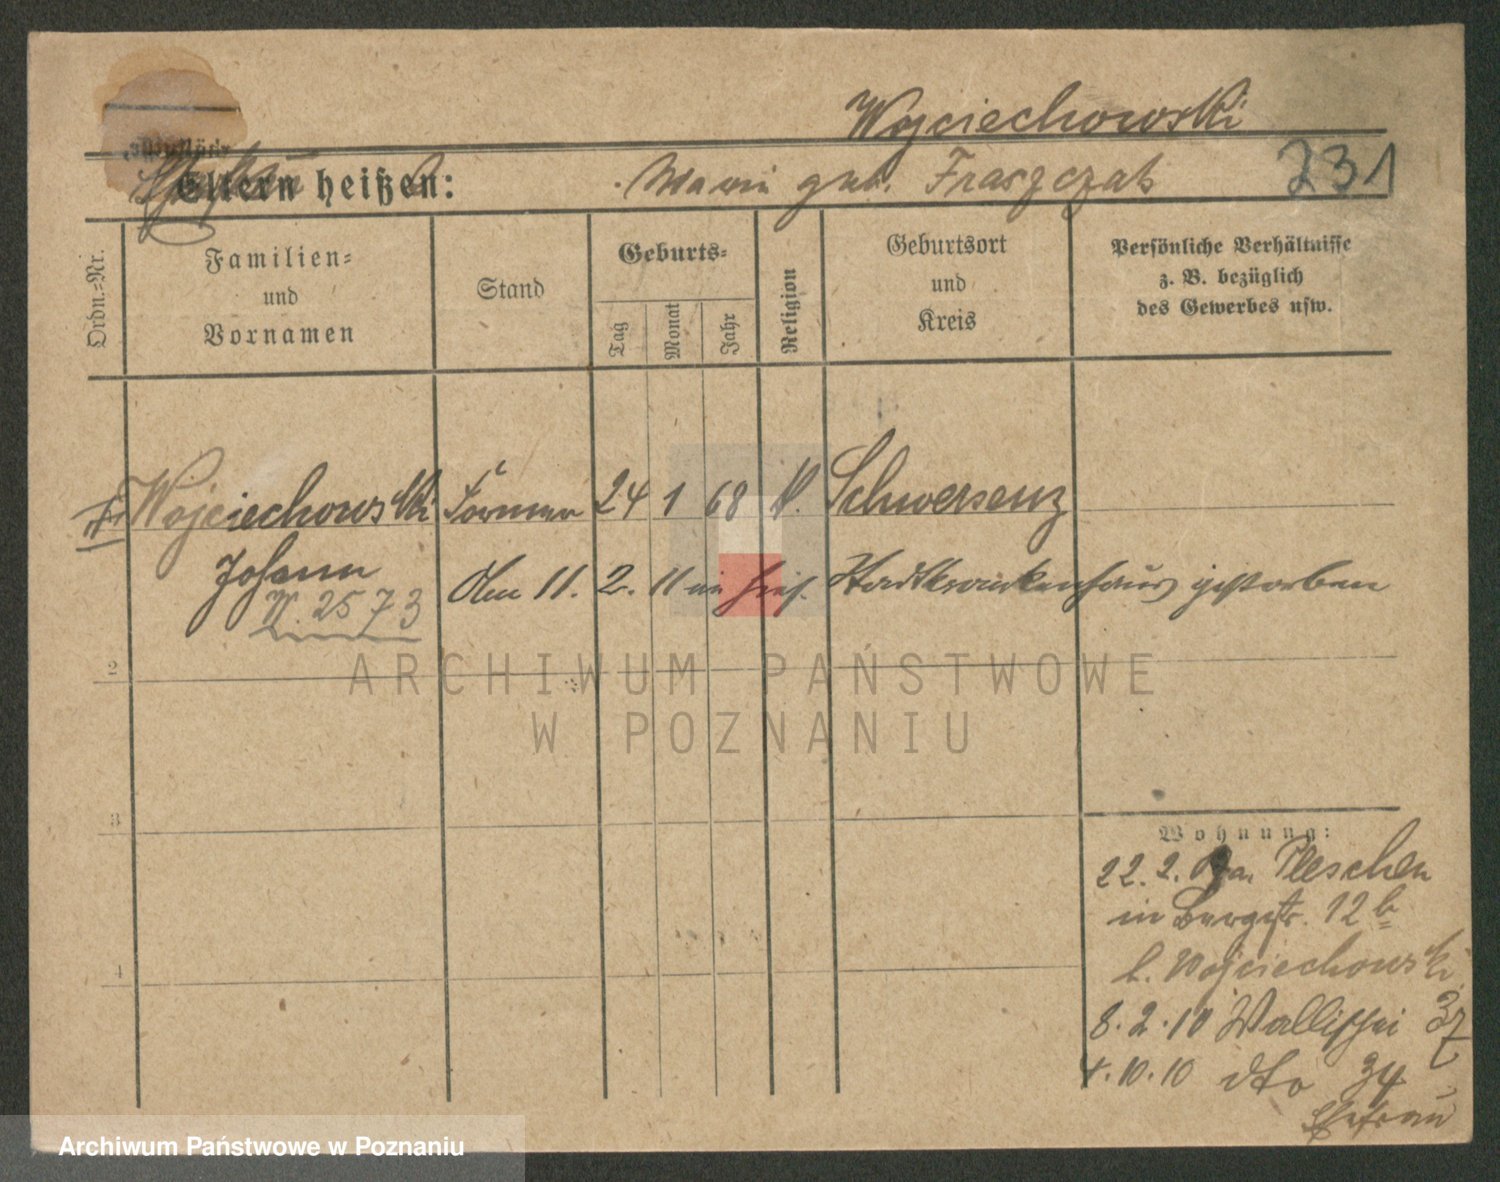 Wojciechowski
Eltern heißen: Maria geb. Fraszczak 231
Ordn.=Nr.
Familien=
und
Vornamen
Stand
Geburts=
Tag
Monat
Jahr
Religion
Geburtsort
und
Kreis
Persönliche Verhältnisse
z. B. bezüglich
des Gewerbes usw.
Wojciechowski Former 24 1 68 K. Schwersenz
Johann
Am 11. 2. 11 im hies. Stadtkrankenhaus gestorben
W. 2573
2
3
4
Wohnung:
22. 2. Pleschen
in Bergstr. 12 b
b. Wojciechowski
8. 2. 10 Wallischei 37
4. 10. 10 dto 34
Ehefrau
ARCHIWUM PAŃSTWOWE
W POZNANIU
Archiwum Państwowe w Poznaniu